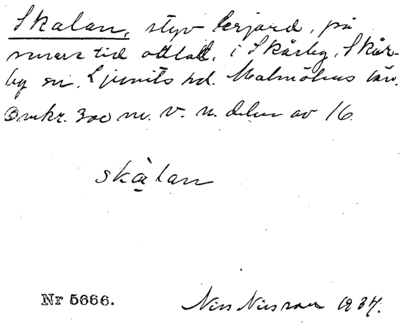 Skalan, styv lerjord, på
senare tid odlad, i Skårby, Skår-
by sn. Ljunits hd. Malmöhus län.
Omkr. 300 m. v. n. delen av 16.
skalan
Nr 5666.
Nils Nilsson 1934.